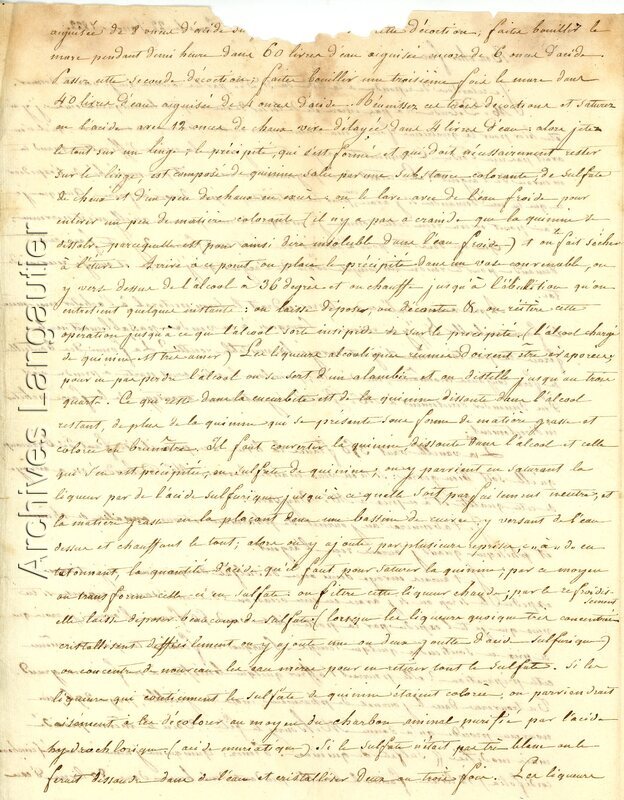 aiguisée de 8 onces d'acide su cette décoction, faites bouillir le
marc pendant demi heure dans 60 livres d'eau aiguisée encore de 6 onces d'acide.
Passez cette seconde décoction; faites bouillir une troisième fois le marc dans
40 livres d'eau aiguisée de 4 onces d'acide. Réunissez ces trois décoctions et saturez
l'acide avec 12 onces de chaux vive délayée dans 4 livres d'eau: alors jetez
le tout sur un linge; le précipité, qui s'est formé et qui doit nécessairement rester
sur le linge est composé de quinine salie par une substance colorante, de sulfate
de chaux et d'un peu de chaux en excès: on le lave avec de l'eau froide pour
enlever un peu de matière colorant (il n'y a pas à craindre que la quinine se
dissolve, parcequ'elle est pour ainsi dire insoluble dans l'eau froide,) et on fait sécher
à l'étuve. Arrivé à ce point, on place le précipité dans un vase convenable, on
y verse dessus de l'alcool à 36 degrés et on chauffe jusqu'à l'ébulition qu'on
entretient quelques instants: on laisse déposer, on décante & on réitère cette
opération jusqu'à ce que l'alcool sorte insipide de sur le précipité (l'alcool chargé
de quinine est très amer) Les liqueurs alcooliques réunies doivent être évaporées,
pour ne pas perdre l'alcool on se sert d'un alambic et on distille jusqu'au trois
quarts. Ce qui reste dans la cucurbite est de la quinine dissoute dans l'alcool
restant, de plus de la quinine qui se présente sous forme de matière grasse et
colorée en brunâtre. Il faut convertir la quinine dissoute dans l'alcool et celle
qui s'en est précipitée, en sulfate de quinine; on y parvient en saturant la
liqueur par de l'acide sulfurique jusqu'à ce qu'elle soit parfaitement neutre, et
la matière grasse en la plaçant dans une bassine de cuivre, y versant de l'eau
dessus et chauffant le tout; alors on y ajoute par plusieurs reprises, et en
tatonnant, la quantité d'acide qu'il faut pour saturer la quinine; par ce moyen
on transforme celle ci en sulfate. on filtre cette liqueur chaude; par le refroidis-
sement
elle laisse déposer beaucoup de sulfate. (lorsque les liqueurs quoique très concentrées
cristallisent difficilement on y ajoute une ou deux gouttes d'acide sulfurique)
on concentre de nouveau les eaux mères pour en retirer tout le sulfate. Si les
liqueurs qui contiennent le sulfate de quinine étaient colorées, on parviendrait
aisément à les décolorer au moyen du charbon animal purifié par l'acide
hydrochlorique (acide muriatique) Si le sulfate n'était pas très blanc on le
ferait dissoudre dans de l'eau et cristalliser deux ou trois fois. Les liqueurs
Archives Langautier